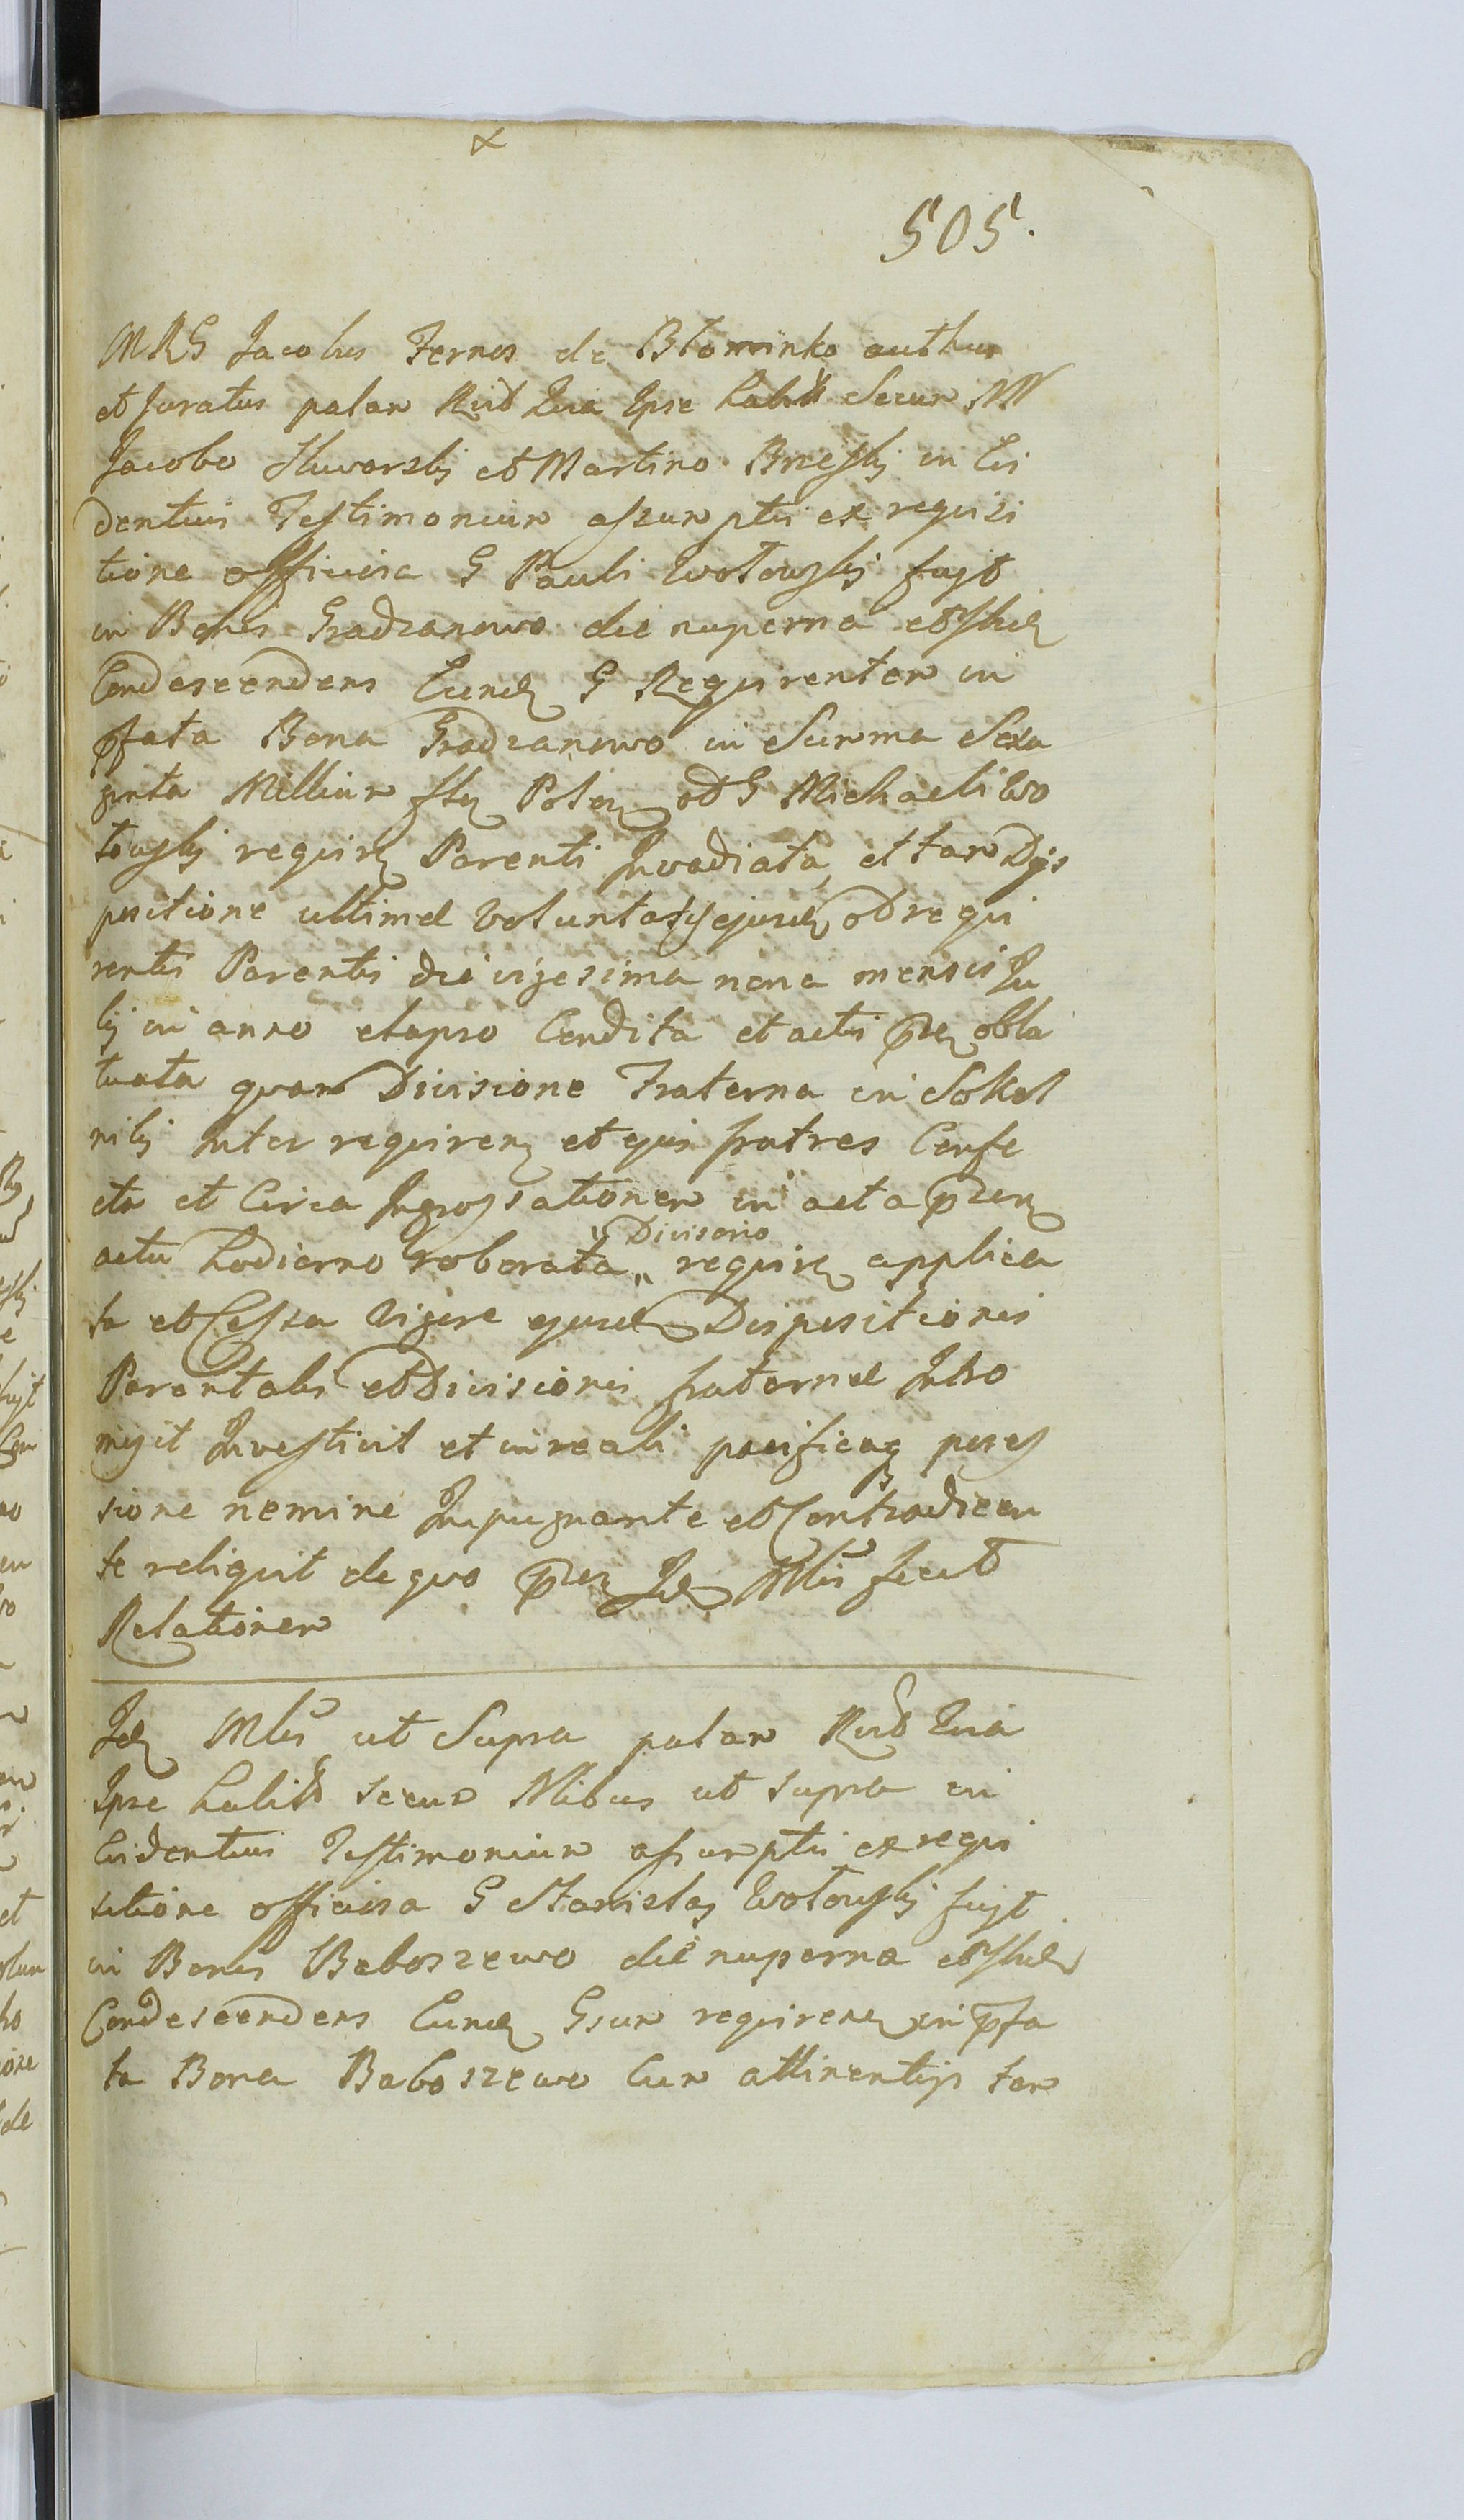 505.
MRG Jacobus Fernes de Błominko authus
et Juratus palam Rndt Quia Ipse habito Secum NN
Jacobo et Martino Brzeski in Evi
dentius Testimonium assumptis ex requisi
tione officiosa G Pauli Wołowski fuit
in Bonis Gradzanowo die nuperna et Ibid
Condescendens Eund G Requirentem in
pfata Bona Gradzanowo in Summa Sexa
ginta Millium flor Polon od G Michaeli Wo
łowski requir Parenti Invadiata, et tam Dis
positione ultimæ Voluntatis ejusd od requi
rentis Parentis die vigesima nona mensis Ju
lij in anno elapso Condita et actis pñ obla
tuata quam Divisione Fraterna in Sokol
niki Inter requiren et ejus fratres Confe
cta et Circa Ingrossationem in acta pñ
actu hodierno roborata " Divisorio requir applica
ta et Cessa Vigore ejusd Dispositionis
Parentalis et Divisionis fraternæ Intro
misit Investivit et in reali pacificaq poses
sione nemine Impugnante et Contradicen
te reliquit de quo pñ Id Mlis fecit
Relationem
Id Mlis ut Supra palam Rndt Quia
Ipse habito secum Nlibus ut supra in
Evidentius Testimonium assumptis ex requi
sitione officiosa G Stanislaj Wołowski fuit
in Bonis Baboszewo die nuperna et Ibid
Condescendens Eund Gsum requiren in pfa
ta Bona Baboszewo Cum attinentijs tam